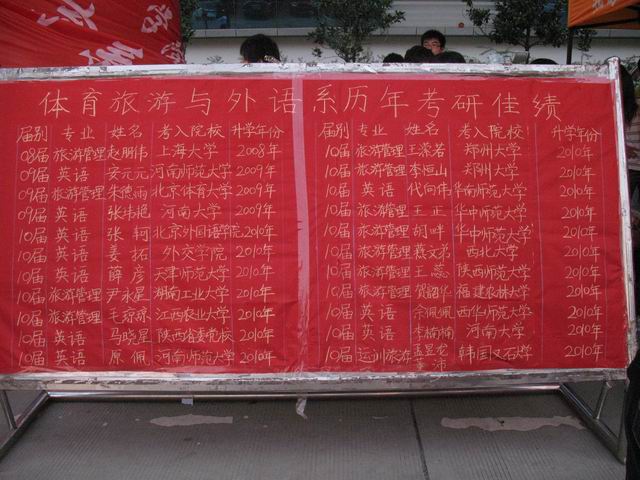 体育旅游与外语系历年考研佳绩
届别 专业 姓名 考入院校 升学年份
08届 旅游管理 赵鹏伟 上海大学 2008年
09届 英语 安元元 河南师范大学 2009年
09届 旅游管理 朱德雨 北京体育大学 2009年
09届 英语 张伟艳 河南大学 2009年
10届 英语 张轲 北京外国语学院 2010年
10届 英语 姜拓 外交学院 2010年
10届 英语 薛彦 天津师范大学 2010年
10届 旅游管理 尹永星 湖南工业大学 2010年
10届 旅游管理 毛琼琼 江西农业大学 2010年
10届 英语 马晓星 陕西省委党校 2010年
10届 英语 原佩 河南师范大学 2010年
届别 专业 姓名 考入院校 升学年份
10届 旅游管理 王深若 郑州大学 2010年
10届 旅游管理 李恒山 郑州大学 2010年
10届 英语 代向伟 华南师范大学 2010年
10届 旅游管理 王正 华中师范大学 2010年
10届 旅游管理 胡畔 华中师范大学 2010年
10届 旅游管理 蔡文弟 西北大学 2010年
10届 旅游管理 王蕊 陕西师范大学 2010年
10届 旅游管理 贺韶华 福建农林大学 2010年
10届 英语 余佩佩 西华师范大学 2010年
10届 英语 李楠楠 河南大学 2010年
10届 运训 旅游 孟显龙 韩国 2010年